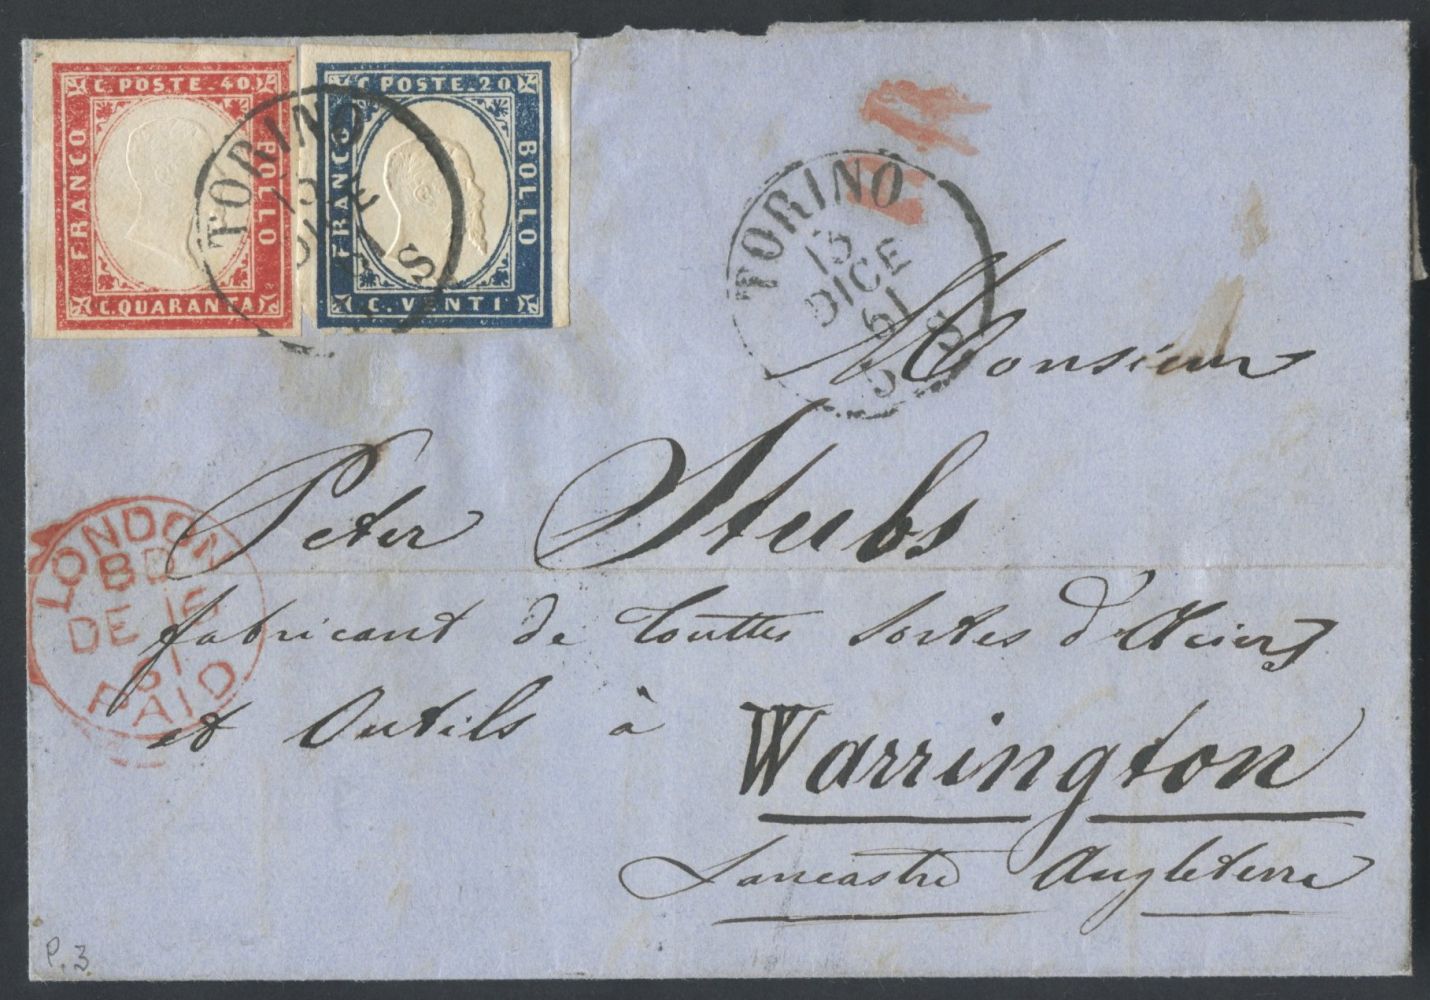 C. POSTE. 40.
FRANCO
BOLLO
C. QUARANTA
C. POSTE. 20
FRANCO
BOLLO
C. VENTI
TORINO
13
DICE
S
TORINO
13
DICE
61
5 S
Monsieur
Peter Stubs
LONDON
BD
DE 16
61
PAID
fabricant de touttes sortes d'Aciers
et Outils à Warrington
Lancastre Angleterre
P. 3